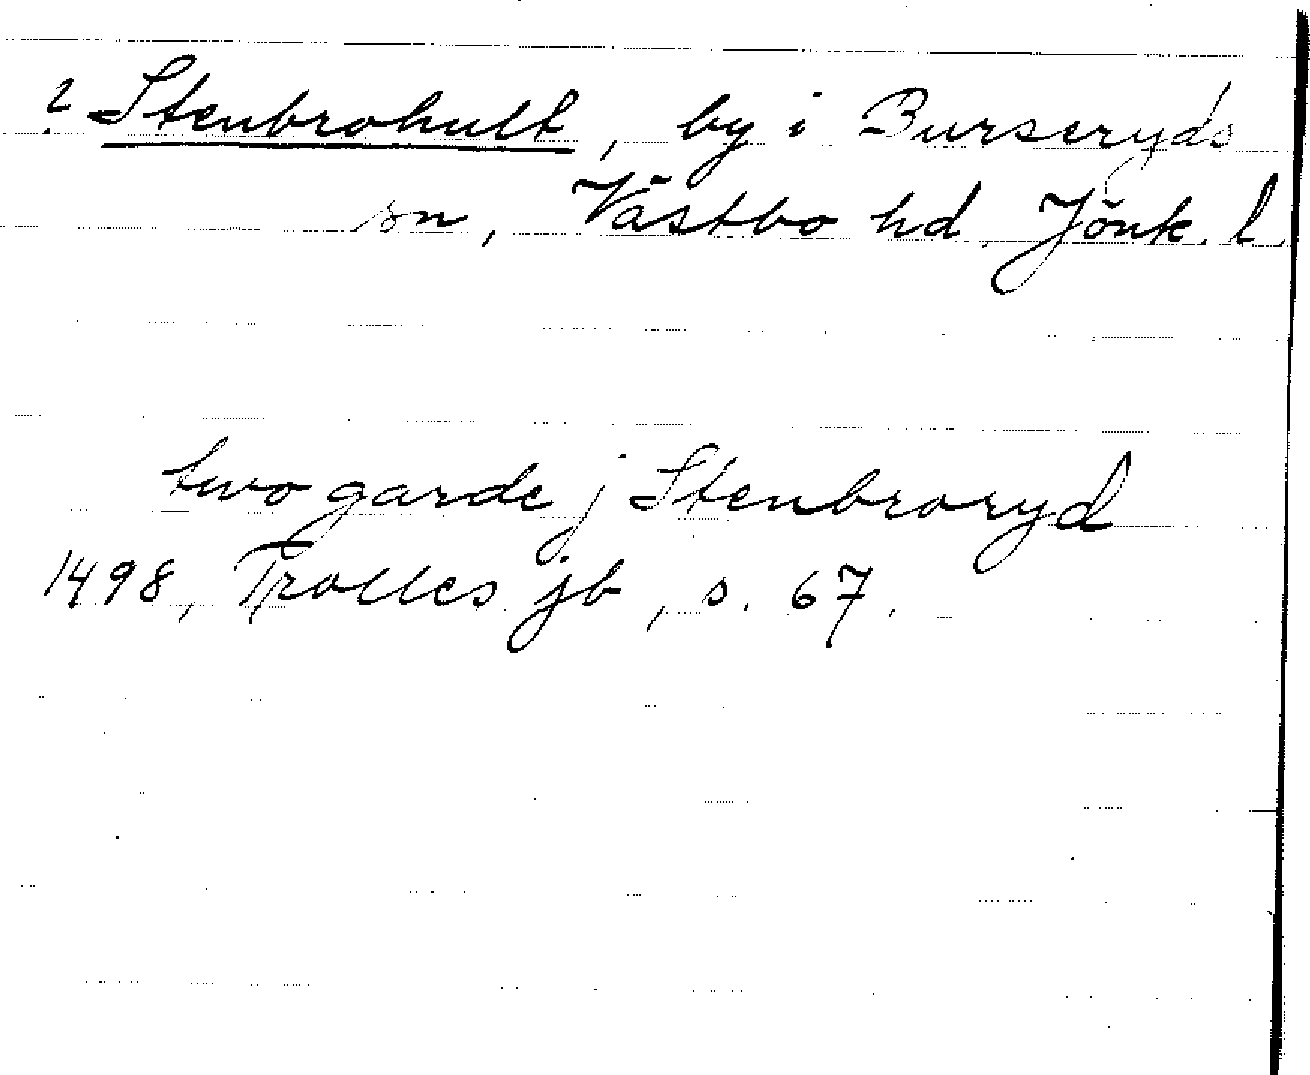 ? Stenbrohult, by i Burseryds
sn, Västbo hd. Jönk. l
two garde j Stenbroryd
1498, Trolles jb, s. 67.